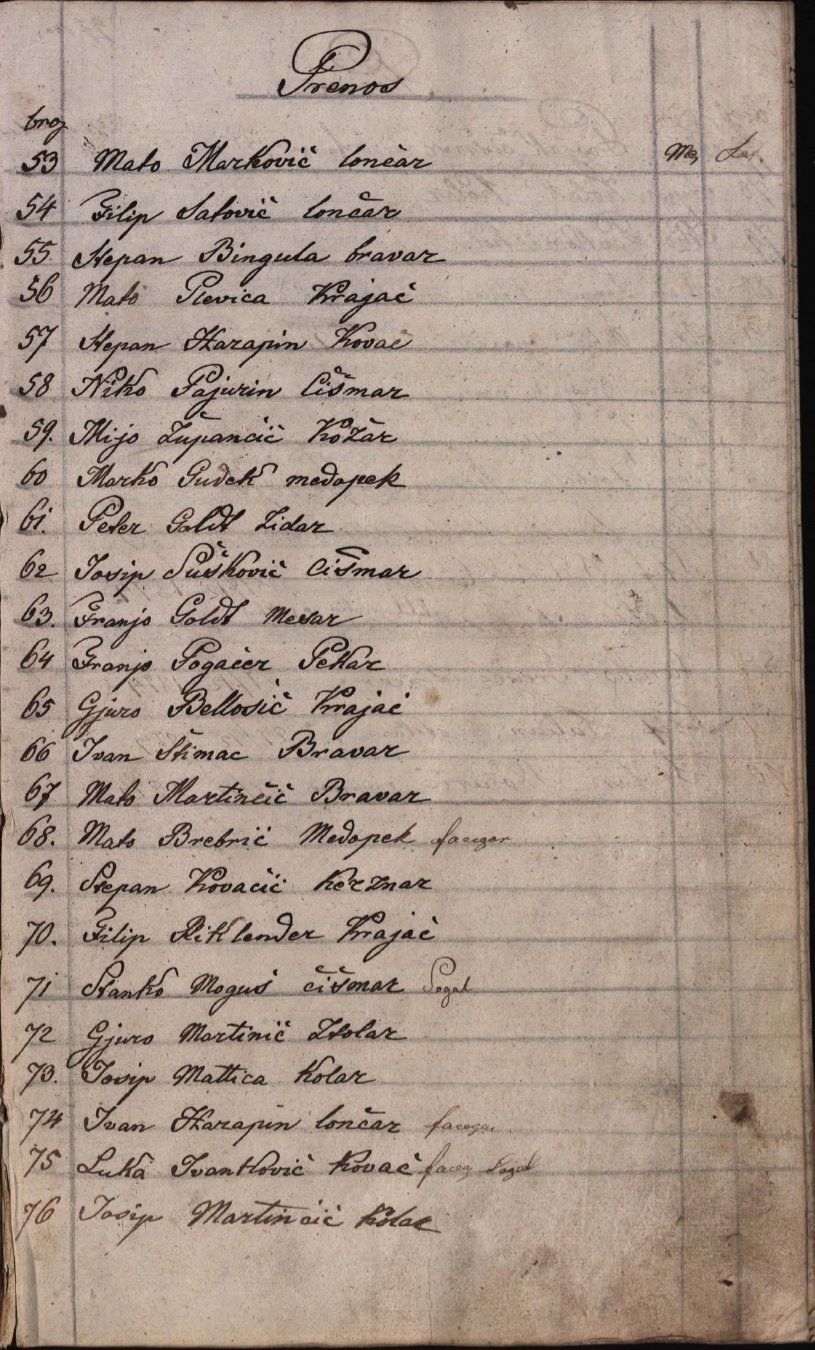 Prenos
broj
53 Mato Marković lončar
54 Filip Satović lončar
55 Stepan Bingula bravar
56 Mato Plevica Krajač
57 Stepan Škarapin Kovač
58 Niko Pajurin Čišmar
59. Mijo Župančić Kožar
60 Marko Gudek medapek
61. Peter Goldt Zidar
62 Josip Sušković Čišmar
63. Franjo Goldt Mesar
64 Franjo Pogačer Pekar
65 Gjuro Bellosić Krajač
66 Ivan Štimac Bravar
67 Mato Martinčić Bravar
68. Mato Brebrić Medapek
69. Stepan Kovačić Kerznar
70. Filip Riklender Krajač
71 Stanko Moguš čišmar
72 Gjuro Martinić Ztolar
73. Josip Mattica Kolar
74 Ivan Škarapin lončar
75 Luka Ivanković Kovač
76 Josip Martinčić Kolar